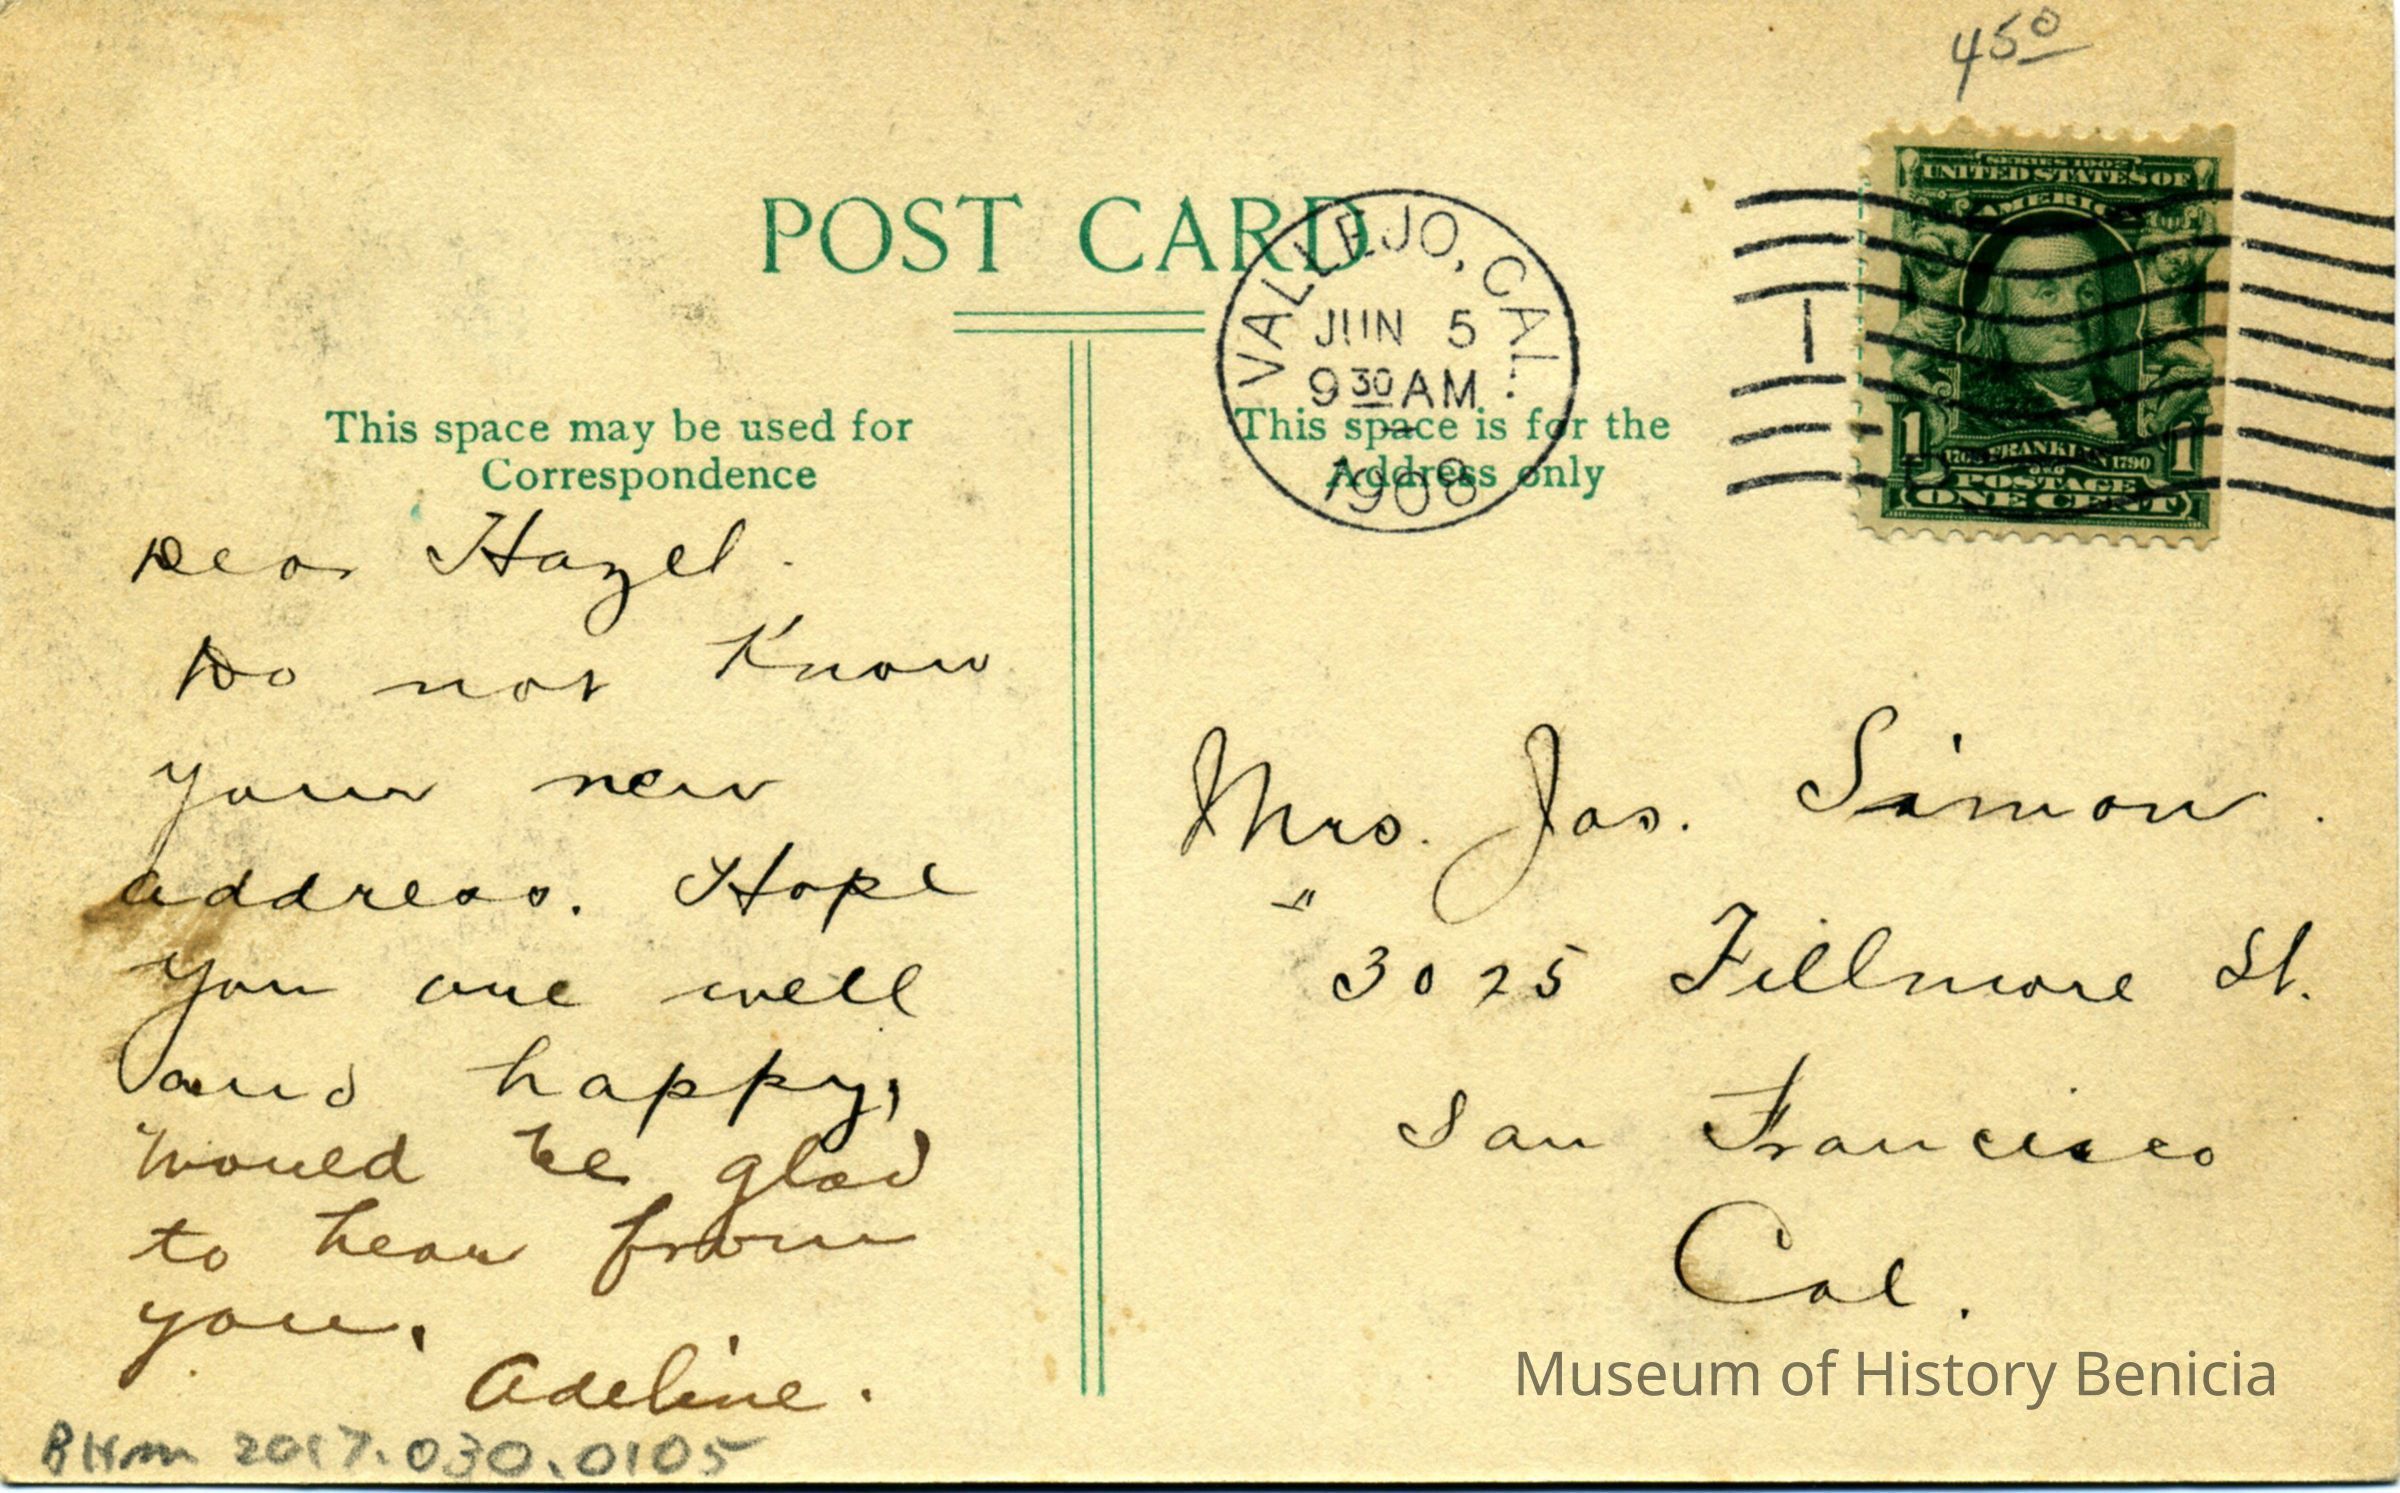 45º
POST CARD
VALLEJO, CAL.
JUN 5
9 30 AM
1908
SERIES 1902
UNITED STATES OF
AMERICA
1 1
1706 FRANKLIN 1790
POSTAGE
ONE CENT
This space may be used for
Correspondence
This space is for the
Address only
Dear Hazel.
Do not Know
your new
address. Hope
you are well
and happy,
would be glad
to hear from
you.
Adeline.
Mrs. Jas. Simon.
3025 Fillmore St.
San Francisco
Cal.
Museum of History Benicia
BHm 2017.030.0105